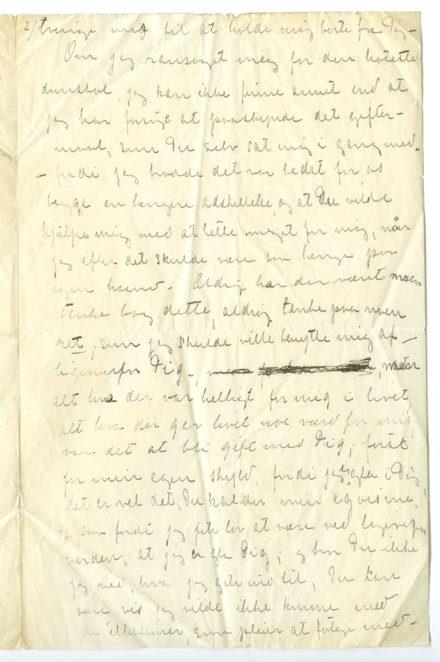 2/ tvinge mig til at holde mig borte fra Dig.
Om jeg ransaget mig for den høieste
domstol, jeg kan ikke finne annet end at
jeg har forsøgt at paaskynde det gifter-
maal, som Du selv sat mig i gang med
– fordi jeg trodde det var bedst for os
begge en længere adskillelse, og at Du vilde
hjælpe mig med at lette meget for mig, når
jeg efter det skulde være saa længe paa
egen haand. Aldrig har der været noen
tanke bag dette, aldrig tanke paa noen
ret, som jeg skulde ville benytte mig af –
ligeoverfor Dig,
alt hva der var helligt for mig i livet
alt hva der gev livet noe værd for mig,
var det at bli gift med Dig, først
for min egen skyld, fordi jeg er gla i Dig,
det er vel det, Du kalder min egoisme,
og saa fordi jeg fik lov at være ved
verden, at jeg er gla Dig; og har Du ikke
jeg ved, hva jeg gik ind til, Du kan
være vis jeg vilde ikke komme med
de illusioner, som pleier at følge med